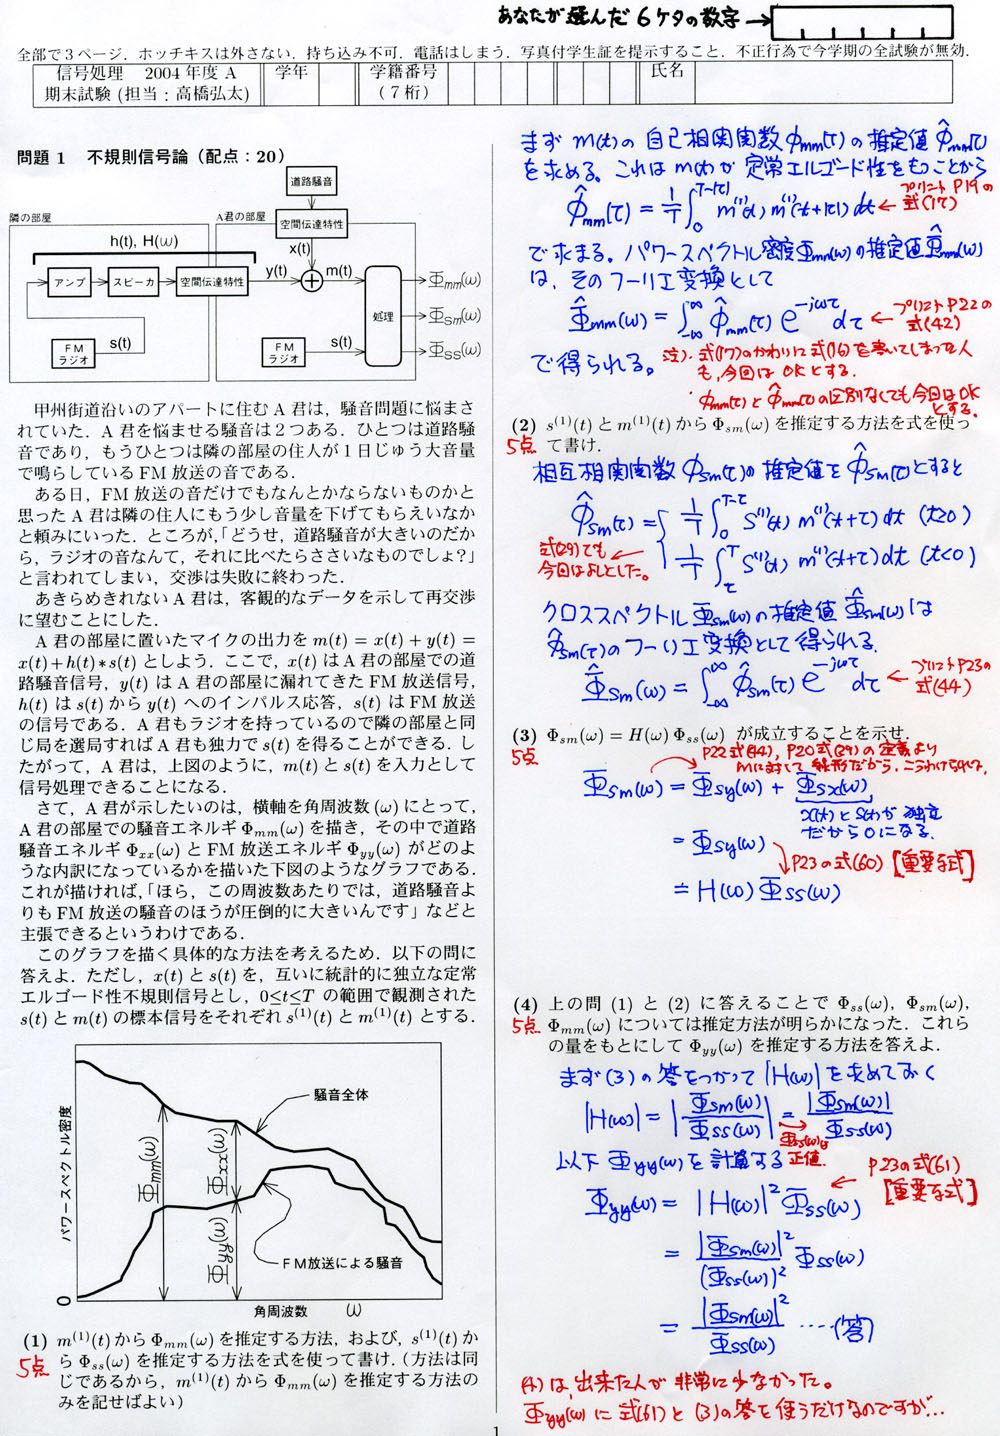 あなたが選んだ6ケタの数字→
全部で3ページ．ホッチキスは外さない．持ち込み不可．電話はしまう．写真付学生証を提示すること．不正行為で今学期の全試験が無効．
信号処理 2004年度A 学年 学籍番号 氏名
期末試験(担当：高橋弘太) (7桁)
問題1 不規則信号論（配点：20）
道路騒音
隣の部屋
A君の部屋
空間伝達特性
h(t), H(ω)
x(t)
アンプ
スピーカ
空間伝達特性
y(t)
m(t)
処理
Φmm(ω)
Φsm(ω)
Φss(ω)
FMラジオ
s(t)
FMラジオ
s(t)
甲州街道沿いのアパートに住むA君は，騒音問題に悩まさ
れていた．A君を悩ませる騒音は2つある．ひとつは道路騒
音であり，もうひとつは隣の部屋の住人が1日じゅう大音量
で鳴らしているFM放送の音である．
ある日，FM放送の音だけでもなんとかならないものかと
思ったA君は隣の住人にもう少し音量を下げてもらえいなか
と頼みにいった．ところが，「どうせ，道路騒音が大きいのだか
ら，ラジオの音なんて，それに比べたらささいなものでしょ？」
と言われてしまい，交渉は失敗に終わった．
あきらめきれないA君は，客観的なデータを示して再交渉
に望むことにした．
A君の部屋に置いたマイクの出力をm(t) = x(t) + y(t) =
x(t)+h(t)*s(t)としよう．ここで，x(t)はA君の部屋での道
路騒音信号，y(t)はA君の部屋に漏れてきたFM放送信号，
h(t)はs(t)からy(t)へのインパルス応答，s(t)はFM放送
の信号である．A君もラジオを持っているので隣の部屋と同
じ局を選局すればA君も独力でs(t)を得ることができる．し
たがって，A君は，上図のように，m(t)とs(t)を入力として
信号処理できることになる．
さて，A君が示したいのは，横軸を角周波数(ω)にとって，
A君の部屋での騒音エネルギΦmm(ω)を描き，その中で道路
騒音エネルギΦxx(ω)とFM放送エネルギΦyy(ω)がどのよ
うな内訳になっているかを描いた下図のようなグラフである．
これが描ければ，「ほら，この周波数あたりでは，道路騒音よ
りもFM放送の騒音のほうが圧倒的に大きいんです」などと
主張できるというわけである．
このグラフを描く具体的な方法を考えるため．以下の問に
答えよ．ただし，x(t)とs(t)を，互いに統計的に独立な定常
エルゴード性不規則信号とし，0≤t≤Tの範囲で観測された
s(t)とm(t)の標本信号をそれぞれs⁽¹⁾(t)とm⁽¹⁾(t)とする．
パワースペクトル密度
騒音全体
Φmm(ω)
Φxx(ω)
Φyy(ω)
FM放送による騒音
0
角周波数 ω
(1) m⁽¹⁾(t)からΦmm(ω)を推定する方法，および，s⁽¹⁾(t)か
5点 らΦss(ω)を推定する方法を式を使って書け．(方法は同
じであるから，m⁽¹⁾(t)からΦmm(ω)を推定する方法の
みを記せばよい)
まずm(t)の自己相関関数φmm(τ)の推定値φ̂mm(τ)
を求める。これはm(t)が定常エルゴード性をもつことから
φ̂mm(τ) = 1/T ∫₀^{T-|τ|} m⁽¹⁾(t) m⁽¹⁾(t+|τ|) dt ← プリントP19の式(17)
で求まる。パワースペクトル密度Φmm(ω)の推定値Φ̂mm(ω)
は、そのフーリエ変換として
Φ̂mm(ω) = ∫_{-∞}^{∞} φ̂mm(τ) e^{-jωτ} dτ ← プリントP22の式(42)
で得られる。
注)・式(17)のかわりに式(16)を書いてしまった人
も、今回はOKとする.
・φmm(τ)とφ̂mm(τ)の区別なくても今回はOK
とする。
(2) s⁽¹⁾(t)とm⁽¹⁾(t)からΦsm(ω)を推定する方法を式を使っ
5点 て書け．
相互相関関数φsm(τ)の推定値をφ̂sm(τ)とすると
φ̂sm(τ) = { 1/T ∫₀^{T-τ} s⁽¹⁾(t) m⁽¹⁾(t+τ) dt (τ≥0)
1/T ∫_τ^T s⁽¹⁾(t) m⁽¹⁾(t+τ) dt (τ<0)
式(29)でも
今回はよしとした。
クロススペクトルΦsm(ω)の推定値Φ̂sm(ω)は
φ̂sm(τ)のフーリエ変換として得られる.
Φ̂sm(ω) = ∫_{-∞}^{∞} φ̂sm(τ) e^{-jωτ} dτ ← プリントP23の式(44)
(3) Φsm(ω) = H(ω) Φss(ω) が成立することを示せ．
5点
P22式(44), P20式(29)の定義より
mに対して線形だから．こうわけられる.
Φsm(ω) = Φsy(ω) + Φsx(ω)
x(t)とs(t)が独立
だから0になる.
= Φsy(ω)
P23の式(60)【重要な式】
= H(ω) Φss(ω)
(4) 上の問(1)と(2)に答えることでΦss(ω)，Φsm(ω)，
5点 Φmm(ω)については推定方法が明らかになった．これら
の量をもとにしてΦyy(ω)を推定する方法を答えよ．
まず(3)の答をつかって|H(ω)|を求めておく
|H(ω)| = |Φsm(ω)/Φss(ω)| = |Φsm(ω)|/Φss(ω)
Φss(ω)は
正値.
以下Φyy(ω)を計算する
P23の式(61)
【重要な式】
Φyy(ω) = |H(ω)|² Φss(ω)
= |Φsm(ω)|²/(Φss(ω))² Φss(ω)
= |Φsm(ω)|²/Φss(ω) ……(答)
(4)は、出来た人が非常に少なかった。
Φyy(ω)に式(61)と(3)の答を使うだけなのですが…
1